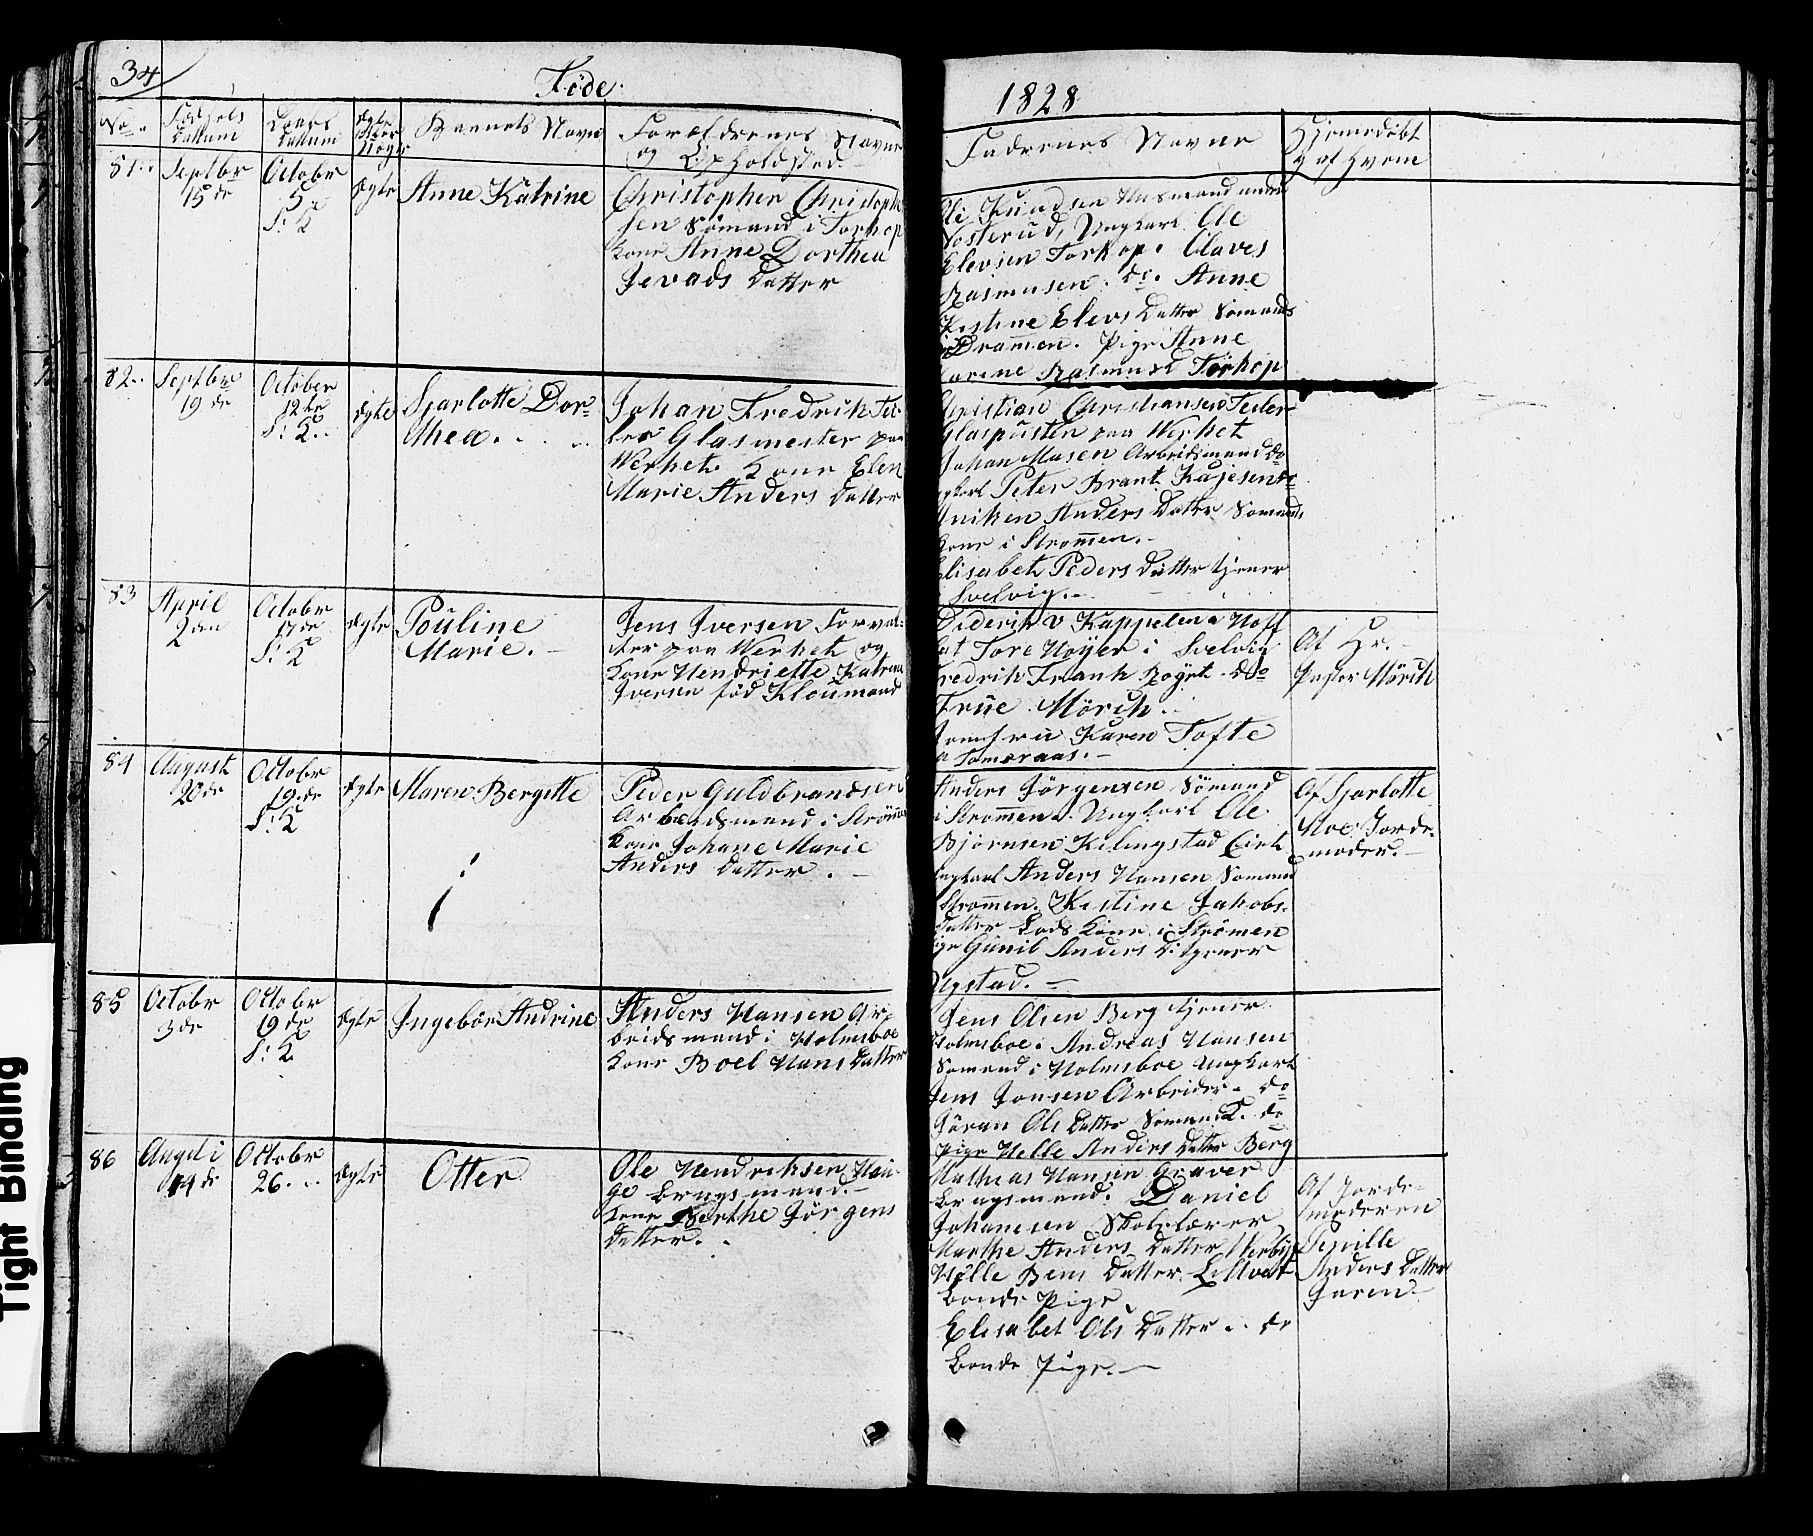 34
Föde.
1828
No
Födsels
Dattum
Daabs
Dattum
Ægte
eller
Uægte
Barnets Navn
Foreldrenes Navne
og Opholdsted
Fadrenes Navne
Hjemedöbt
af hvem
81..
Septbr
15 de
Octobr
5
Ægte
Anne Katrine
Christopher Christoph
sen Sömand i Torkop
Kone Anne Dorthea
Datter
Ole Knudsen Husmand under
Ungkarl Ole
Elevsen Torkop. Claves
Rasmusen. do. Anne
Kistine Elevs Datter Sömands
Drammen. Pige Anne
Karine Rasmusd Torkop
82..
Septbr
19 de
October
12te
Ægte
Sjarlotte Dor-
thea.
Johan Fredrik Tei
ler Glasmester paa
Werket. Kone Elen
Marie Anders Datter
Christian Christiansen Teiler
Glaspusten paa Werket
Johan Masen Arbeidsmand do
Peter Brant
Aniken Anders Datter Sömands
Kone i Strømmen.
Elisabet Peders Datter tjener
Svelvig.
83
April
2 den
Octobr
17 de
Ægte
Pouline
Marie.
Jens Iversen Forval-
ter paa Werket og
Kone Hendriette Katrina
Iversen föd Kloumand
Diderik v Kappelen a Hoff
Tore Höyer i Svelvig
Fredrik Frank Röyrt do
Frue Mörch.
Jomfru Karen Tofte
a Tomeraas.
Af Hr.
Pastor Mörch
84
August
20 de
Octobr
19 de
Ægte
Maren Bergitte
Peder Guldbrandsen
Arbeidsmand i Strömen
Kone Johane Marie
Anders Datter.
Anders Jörgensen Sömand
i Strömen. Ungkarl Ole
Björnsen Kilingstad Eiek
Ungkarl Anders Hansen Sömand
Strömen. Kistine Jakobs-
datter Lods Kone i Strömen
Pige Gunil Anders D. tjener
Af Sjarlotte
Moe Jorde-
moder.
85
Octobr
3 de
Octobr
19 de
Ægte
Ingebör Andrine
Anders Hansen Ar
beidsmand i Holmsboe
Kone Boel Hans Datter
Jens Olsen Berg tjener
Holmsboe. Andreas Hansen
Sömand i Holmsboe Ungkarl
Jens Jonsen Arbeider. do
Göran Ols Datter Sömands K. do
Pige Helle Anders Datter Berg
86
14 de
Octobr
26.
Ægte
Otter
Ole Hendriksen Hau-
ge brugsmand.
Kone Berthe Jörgens
Datter.
Mathias Hansen Graver
brugsmand. Daniel
Johannesen Skolelærer
Marthe Anders Datter
Helle Bens Datter
Bonde Pige
Elisabet Ols Datter .. do
Bonde Pige.
Af Jorde-
moderen
Pernille
Anders Datter
Tight Binding